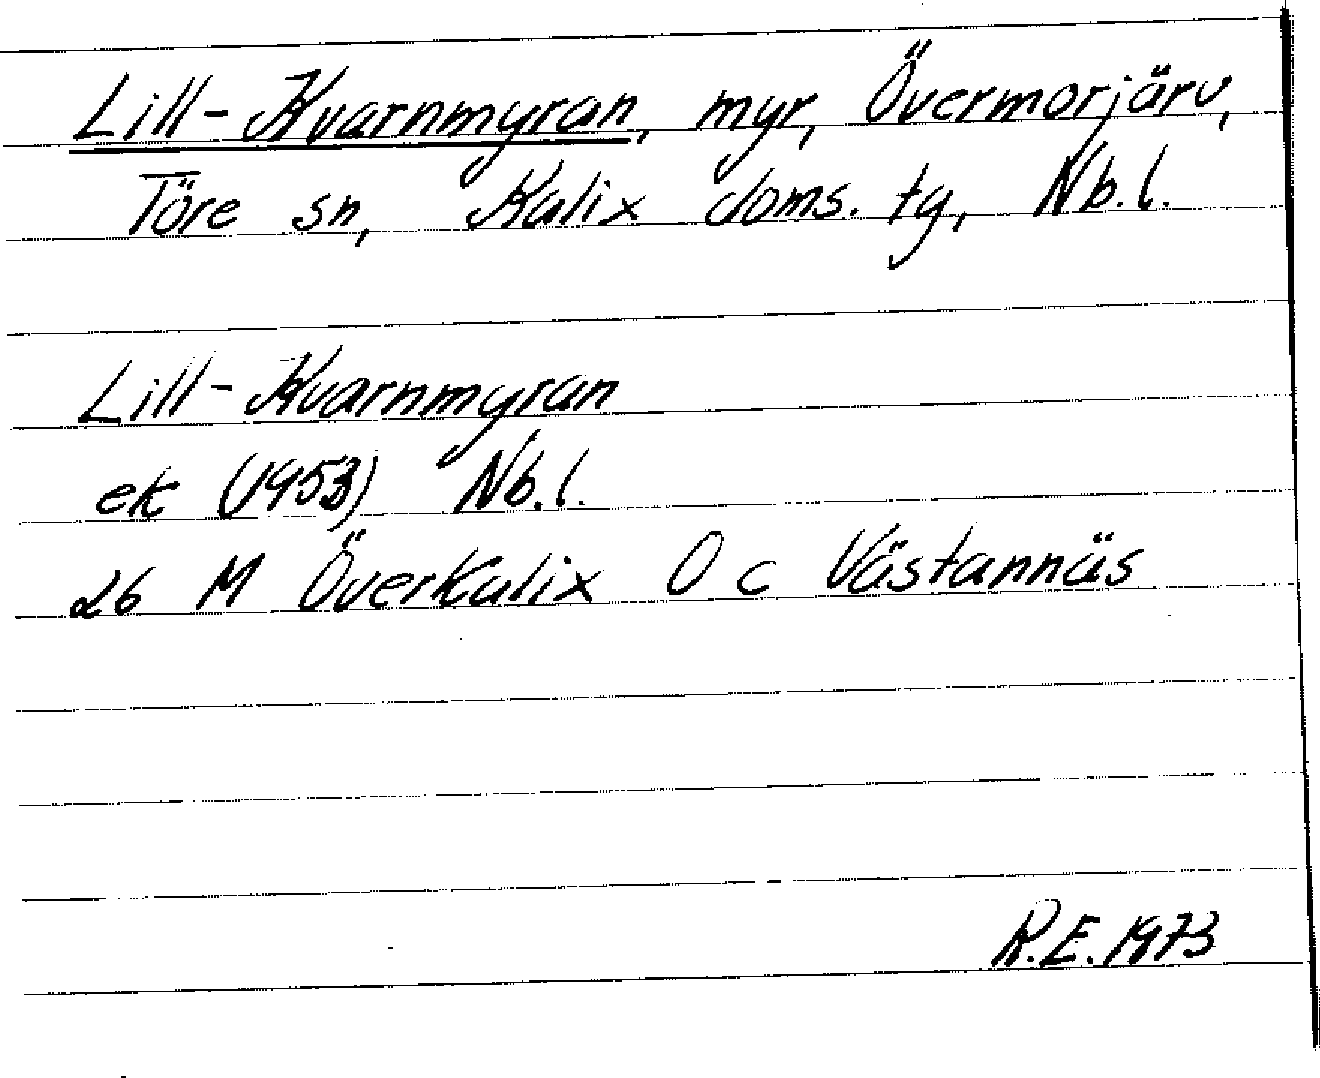 Lill-Kvarnmyran, myr, Övermorjärv,
Töre sn, Kalix doms. tg, Nb.l.
Lill-Kvarnmyran
ek (1953) Nb.l.
26 M Överkalix O c Västannäs
R.E. 1973